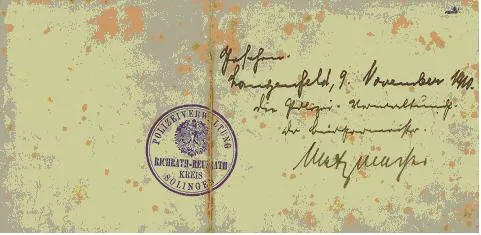 Gesehen.
Langenfeld, 9. November 1910.
Die Polizei-Verwaltung.
Der Bürgermeister.
POLIZEIVERWALTUNG
RICHRATH-REUSRATH
KREIS
SOLINGEN